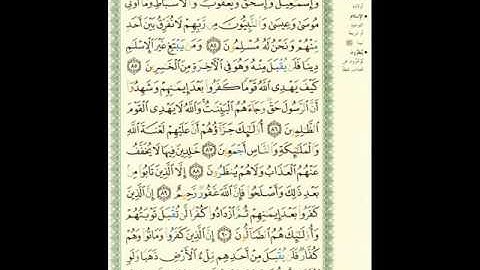 وَإِسْمَٰعِيلَ وَإِسْحَٰقَ وَيَعْقُوبَ وَٱلْأَسْبَاطِ وَمَآ أُوتِيَ
مُوسَىٰ وَعِيسَىٰ وَٱلنَّبِيُّونَ مِن رَّبِّهِمْ لَا نُفَرِّقُ بَيْنَ أَحَدٍ
مِّنْهُمْ وَنَحْنُ لَهُۥ مُسْلِمُونَ ٨٤ وَمَن يَبْتَغِ غَيْرَ ٱلْإِسْلَٰمِ
دِينًا فَلَن يُقْبَلَ مِنْهُ وَهُوَ فِي ٱلْأٓخِرَةِ مِنَ ٱلْخَٰسِرِينَ ٨٥
كَيْفَ يَهْدِي ٱللَّهُ قَوْمًا كَفَرُوا۟ بَعْدَ إِيمَٰنِهِمْ وَشَهِدُوٓا۟
أَنَّ ٱلرَّسُولَ حَقٌّ وَجَآءَهُمُ ٱلْبَيِّنَٰتُ وَٱللَّهُ لَا يَهْدِي ٱلْقَوْمَ
ٱلظَّٰلِمِينَ ٨٦ أُو۟لَٰٓئِكَ جَزَآؤُهُمْ أَنَّ عَلَيْهِمْ لَعْنَةَ ٱللَّهِ
وَٱلْمَلَٰٓئِكَةِ وَٱلنَّاسِ أَجْمَعِينَ ٨٧ خَٰلِدِينَ فِيهَا لَا يُخَفَّفُ
عَنْهُمُ ٱلْعَذَابُ وَلَا هُمْ يُنظَرُونَ ٨٨ إِلَّا ٱلَّذِينَ تَابُوا۟ مِنۢ
بَعْدِ ذَٰلِكَ وَأَصْلَحُوا۟ فَإِنَّ ٱللَّهَ غَفُورٌ رَّحِيمٌ ٨٩ إِنَّ ٱلَّذِينَ
كَفَرُوا۟ بَعْدَ إِيمَٰنِهِمْ ثُمَّ ٱزْدَادُوا۟ كُفْرًا لَّن تُقْبَلَ تَوْبَتُهُمْ
وَأُو۟لَٰٓئِكَ هُمُ ٱلضَّآلُّونَ ٩٠ إِنَّ ٱلَّذِينَ كَفَرُوا۟ وَمَاتُوا۟ وَهُمْ
كُفَّارٌ فَلَن يُقْبَلَ مِنْ أَحَدِهِم مِّلْءُ ٱلْأَرْضِ ذَهَبًا وَلَوِ